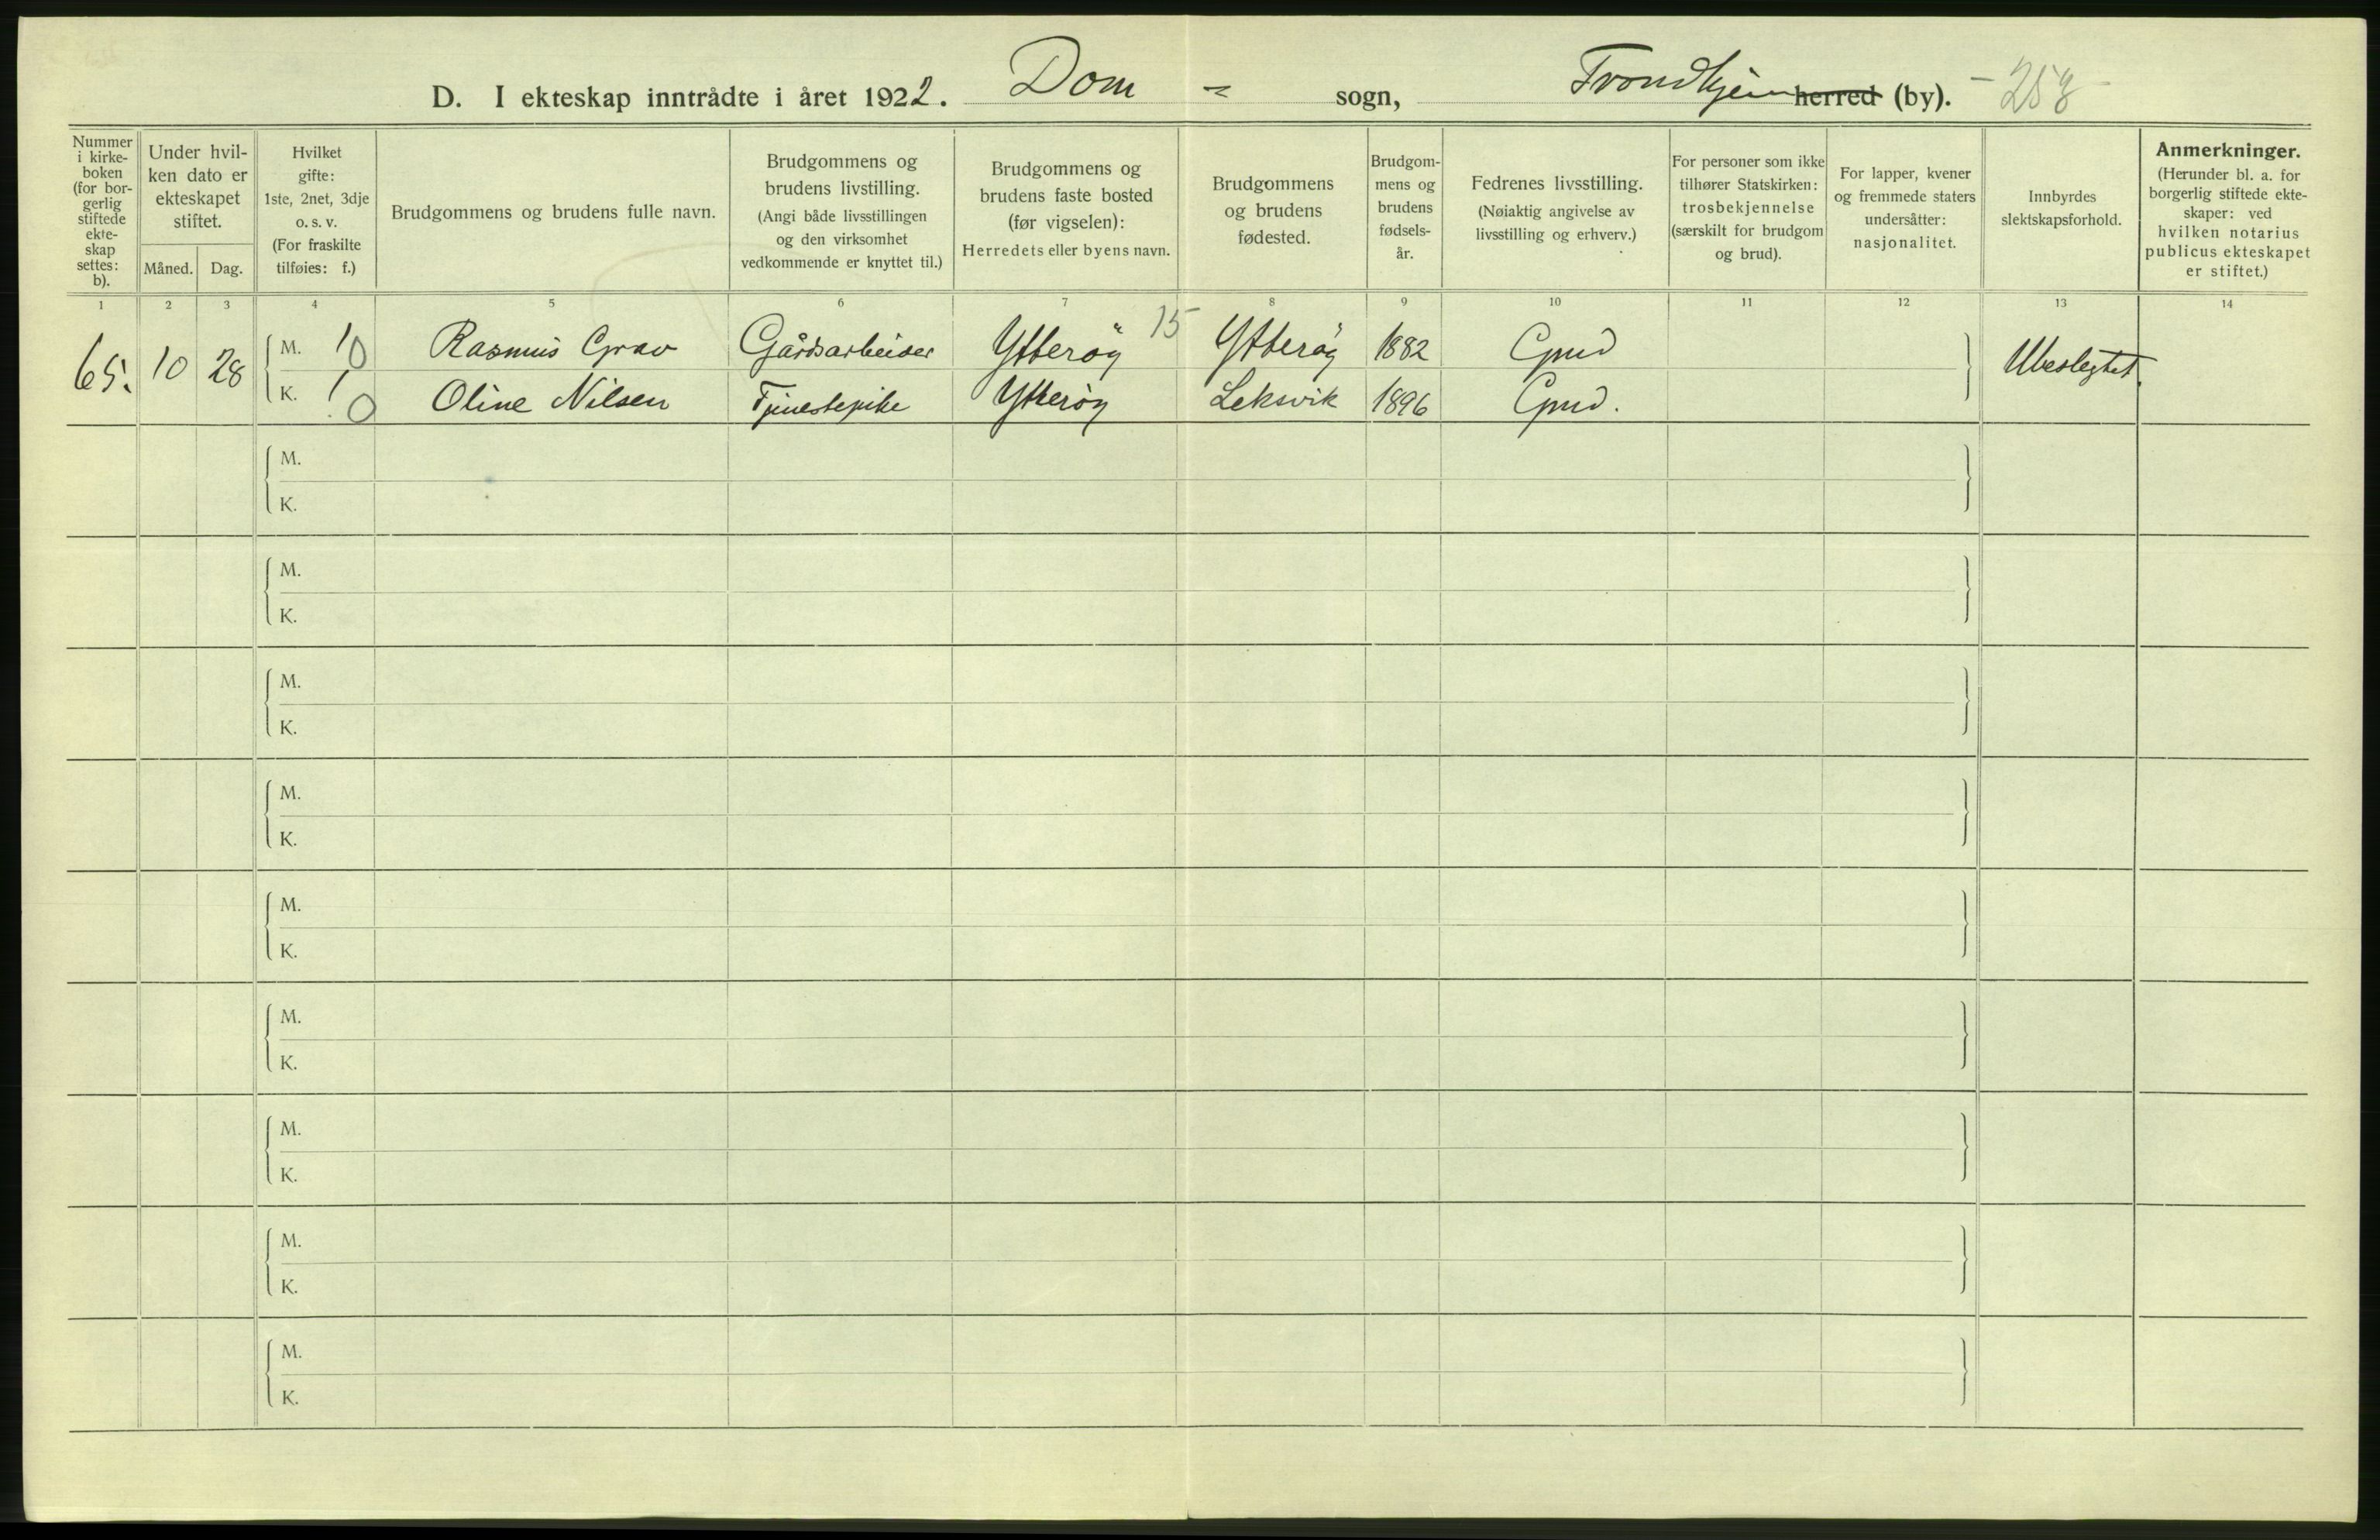 D. I ekteskap inntrådte i året 1922. Dom - sogn, Trondhjem herred (by). - 258 -
Nummer
i kirke-
boken
(for bor-
gerlig
stiftede
ekte-
skap
settes:
b).
Under hvil-
ken dato er
ekteskapet
stiftet.
Måned. Dag.
Hvilket
gifte:
1ste, 2net, 3dje
o. s. v.
(For fraskilte
tilføies: f.)
Brudgommens og brudens fulle navn.
Brudgommens og
brudens livstilling.
(Angi både livsstillingen
og den virksomhet
vedkommende er knyttet til.)
Brudgommens og
brudens faste bosted
(før vigselen):
Herredets eller byens navn.
Brudgommens
og brudens
fødested.
Brudgom-
mens og
brudens
fødsels-
år.
Fedrenes livsstilling.
(Nøiaktig angivelse av
livsstilling og erhverv.)
For personer som ikke
tilhører Statskirken:
trosbekjennelse
(særskilt for brudgom
og brud).
For lapper, kvener
og fremmede staters
undersåtter:
nasjonalitet.
Innbyrdes
slektskapsforhold.
Anmerkninger.
(Herunder bl. a. for
borgerlig stiftede ekte-
skaper: ved
hvilken notarius
publicus ekteskapet
er stiftet.)
1 2 3 4 5 6 7 8 9 10 11 12 13 14
65. 10 28 M. 1 0 Rasmus Grav Gårdsarbeider Ytterøy 15 Ytterøy 1882 Gmd Ubeslegtet.
K. 1 0 Oline Nilsen Tjenestepike Ytterøy Leksvik 1896 Gmd.
M.
K.
M.
K.
M.
K.
M.
K.
M.
K.
M.
K.
M.
K.
M.
K.
M.
K.